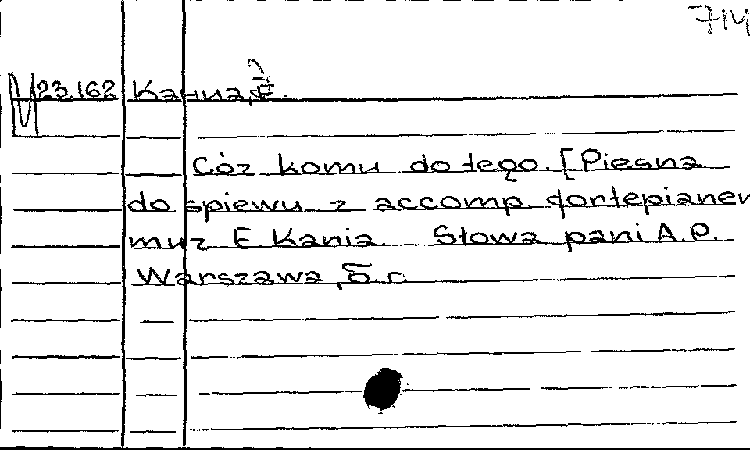 714
M 23.162 Kania, E.
Cóż komu do tego. [Piesna
do spiewu z accomp fortepianem
muz E Kania Słowa pani A.P.
Warszawa, b. r.